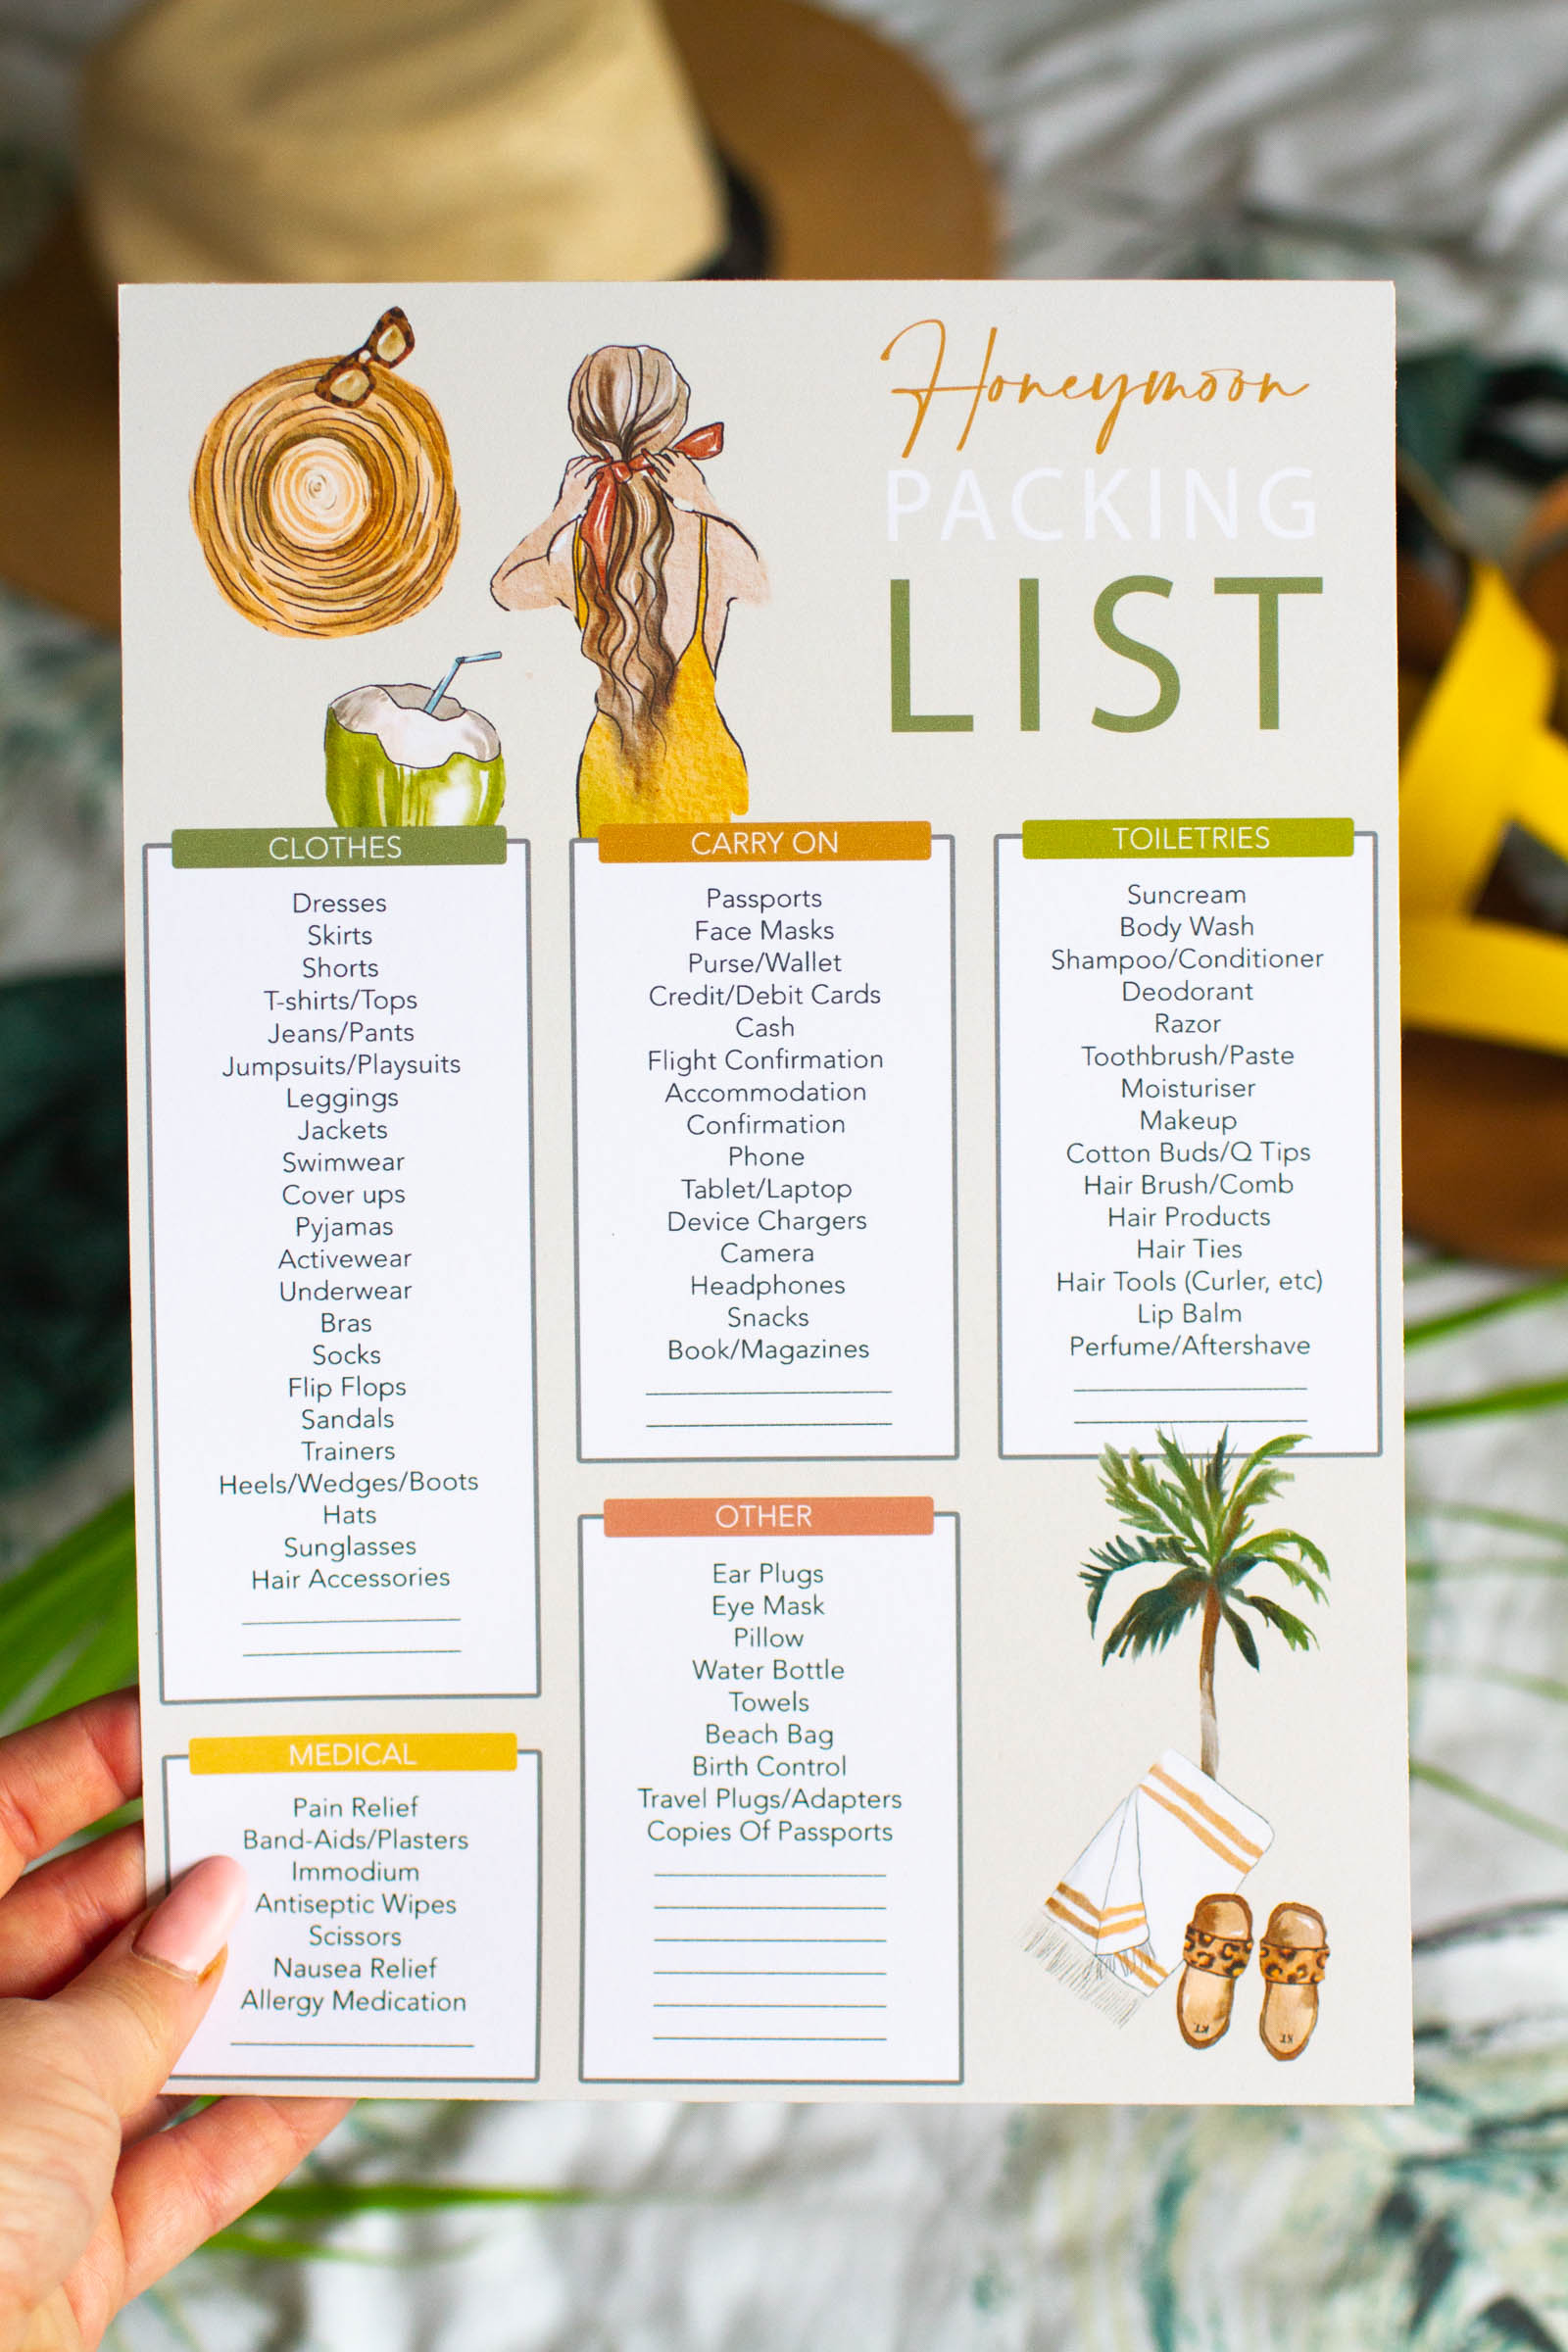 Honeymoon
PACKING
LIST
CLOTHES
Dresses
Skirts
Shorts
T-shirts/Tops
Jeans/Pants
Jumpsuits/Playsuits
Leggings
Jackets
Swimwear
Cover ups
Pyjamas
Activewear
Underwear
Bras
Socks
Flip Flops
Sandals
Trainers
Heels/Wedges/Boots
Hats
Sunglasses
Hair Accessories
MEDICAL
Pain Relief
Band-Aids/Plasters
Immodium
Antiseptic Wipes
Scissors
Nausea Relief
Allergy Medication
CARRY ON
Passports
Face Masks
Purse/Wallet
Credit/Debit Cards
Cash
Flight Confirmation
Accommodation
Confirmation
Phone
Tablet/Laptop
Device Chargers
Camera
Headphones
Snacks
Book/Magazines
OTHER
Ear Plugs
Eye Mask
Pillow
Water Bottle
Towels
Beach Bag
Birth Control
Travel Plugs/Adapters
Copies Of Passports
TOILETRIES
Suncream
Body Wash
Shampoo/Conditioner
Deodorant
Razor
Toothbrush/Paste
Moisturiser
Makeup
Cotton Buds/Q Tips
Hair Brush/Comb
Hair Products
Hair Ties
Hair Tools (Curler, etc)
Lip Balm
Perfume/Aftershave